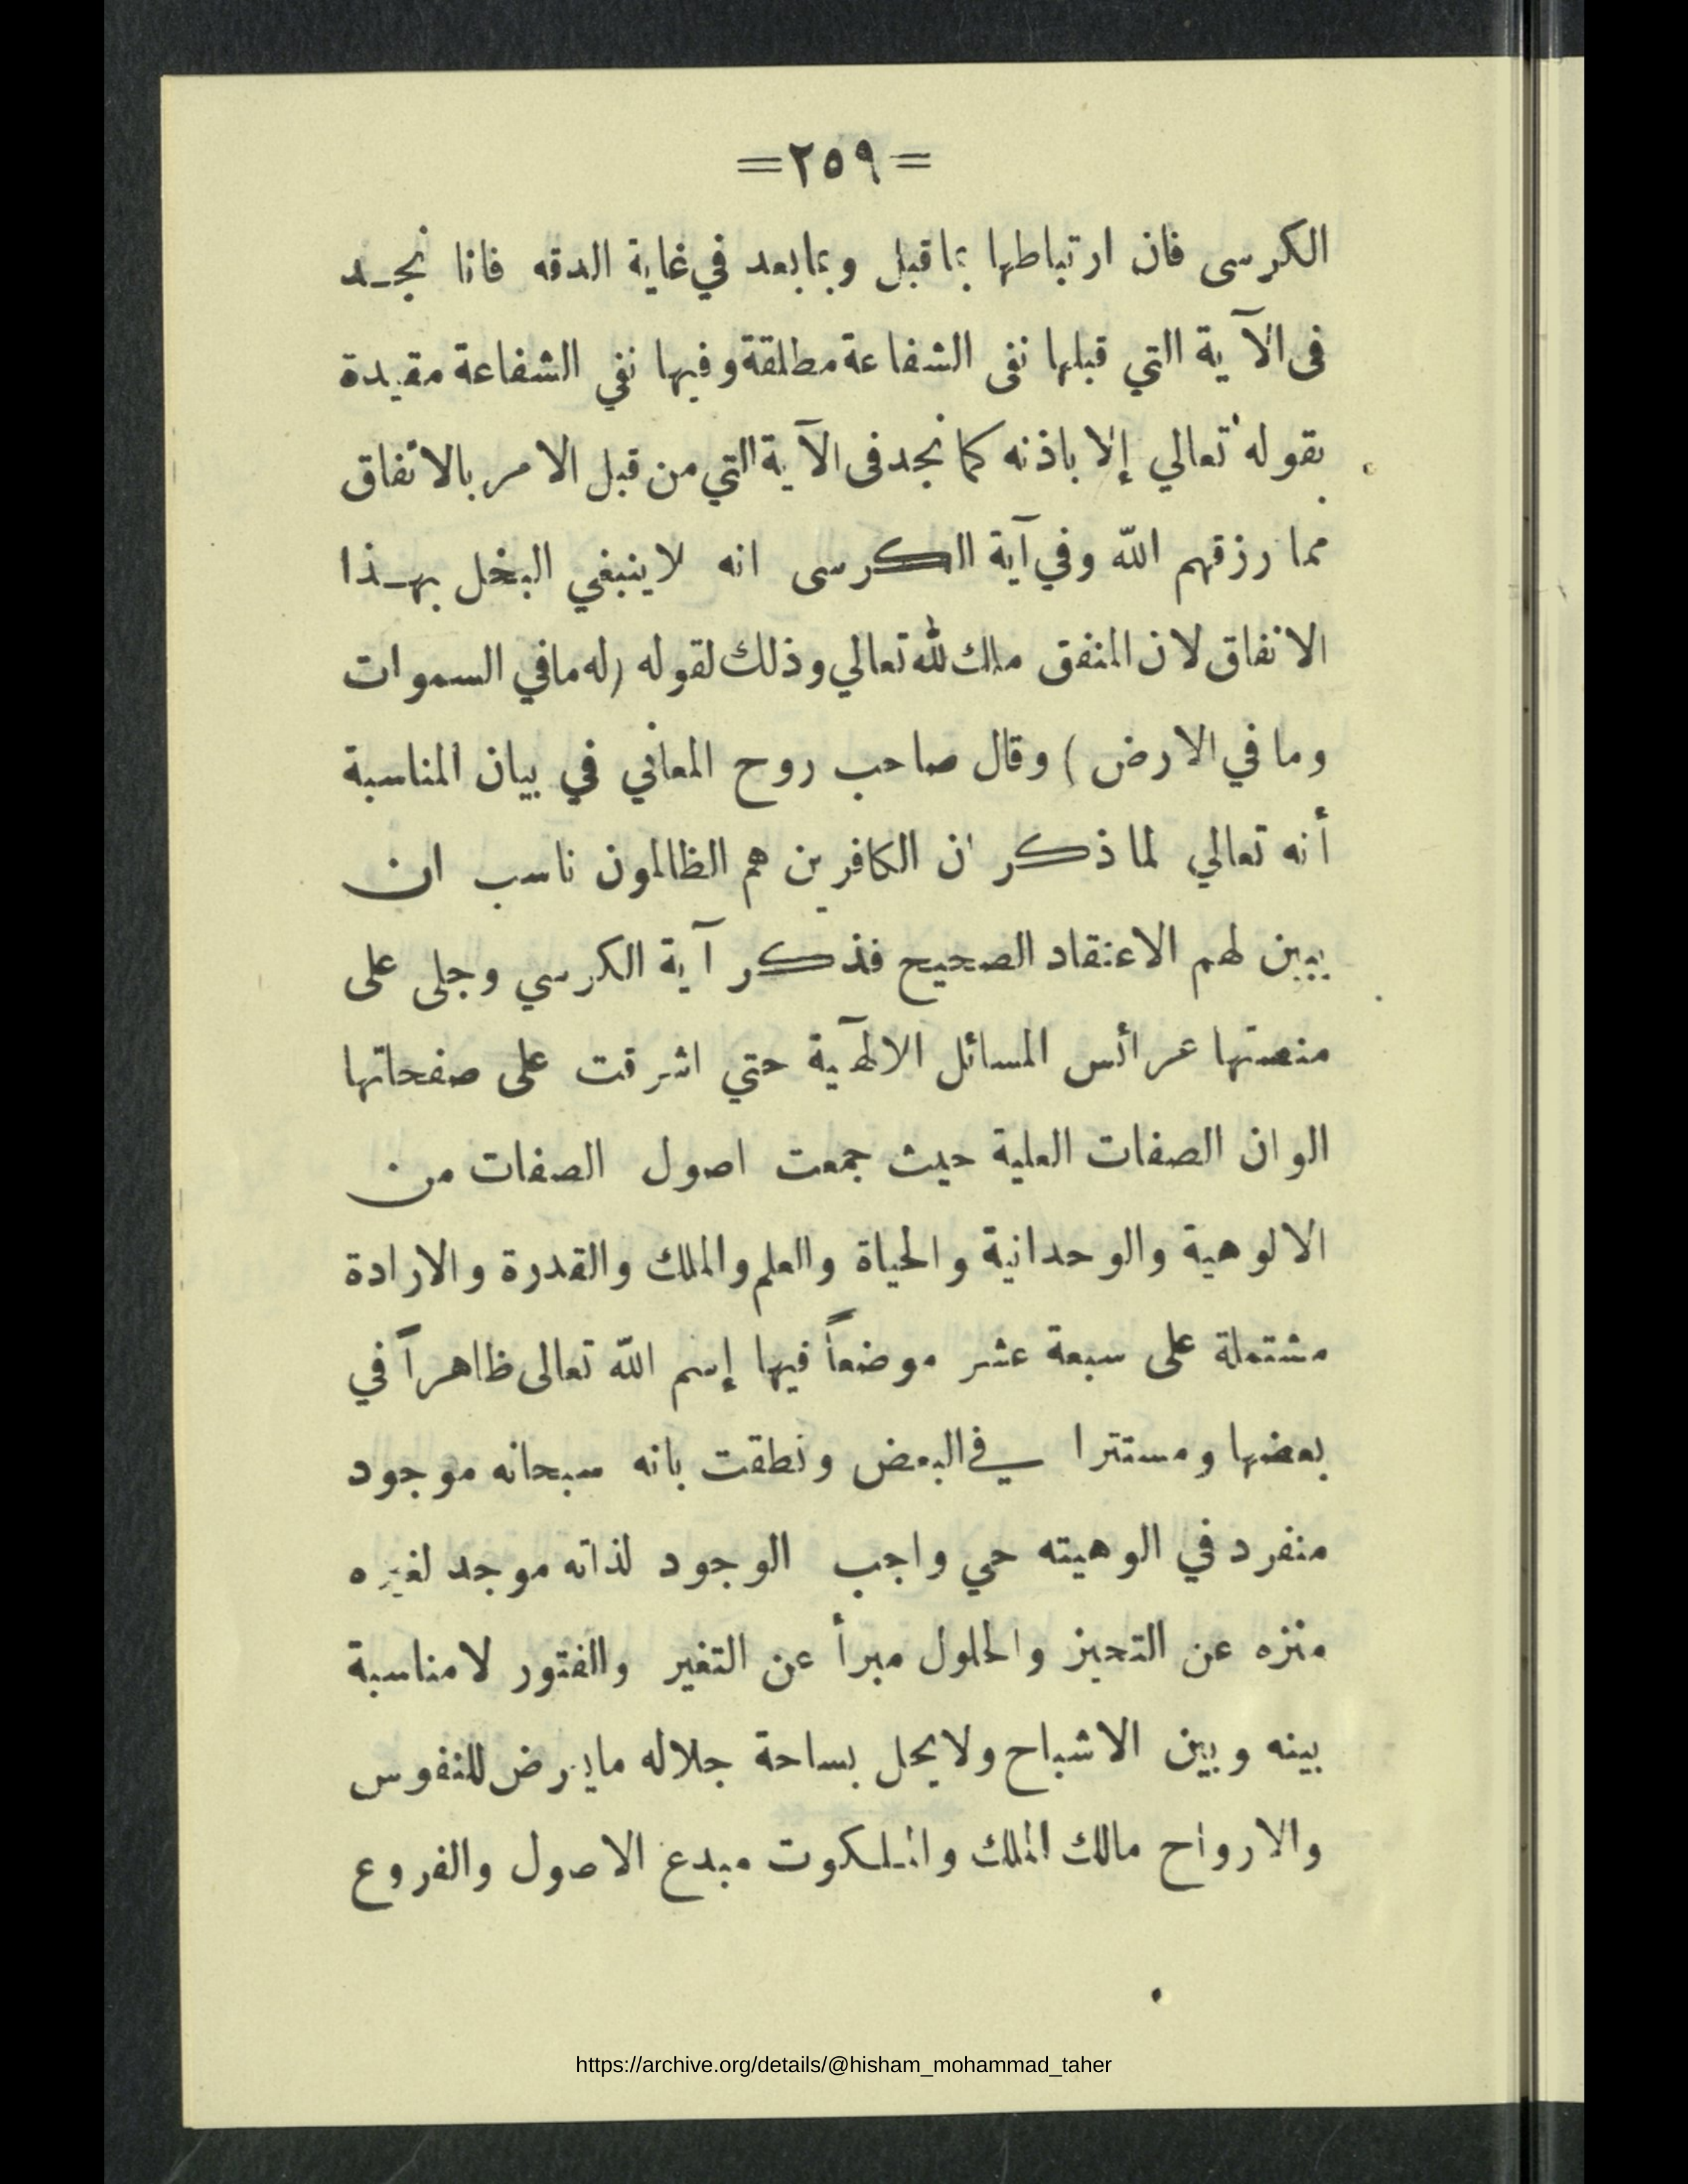 =٢٥٩=
الكرسى فان ارتباطها بما قبل وبما بعد في غاية الدقه فانا نجـد
فى الآية التي قبلها نفى الشفاعة مطلقة وفيها نفي الشفاعة مقيدة
بقوله تعالي إلا باذنه كما نجد فى الآية التي من قبل الامر بالانفاق
مما رزقهم الله وفي آية الكرسى انه لاينبغي البخل بهـذا
الانفاق لان المنفق ملك لله تعالي وذلك لقوله (له مافي السموات
وما في الارض ) وقال صاحب روح المعاني في بيان المناسبة
أنه تعالي لما ذكر ان الكافرين هم الظالمون ناسب ان
يبين لهم الاعتقاد الصحيح فذكر آية الكرسي وجلى على
منصتها عرائس المسائل الالهٓية حتي اشرقت على صفحاتها
الوان الصفات العلية حيث جمعت اصول الصفات من
الالوهية والوحدانية والحياة والعلم والملك والقدرة والارادة
مشتملة على سبعة عشر موضعاً فيها إسم الله تعالى ظاهراً في
بعضها ومستترا في البعض ونطقت بانه سبحانه موجود
منفرد في الوهيته حي واجب الوجود لذاته موجد لغيره
منزه عن التحيز والحلول مبرأ عن التغير والفتور لامناسبة
بينه وبين الاشباح ولايحل بساحة جلاله مايعرض للنفوس
والارواح مالك الملك والملكوت مبدع الاصول والفروع
https://archive.org/details/@hisham_mohammad_taher